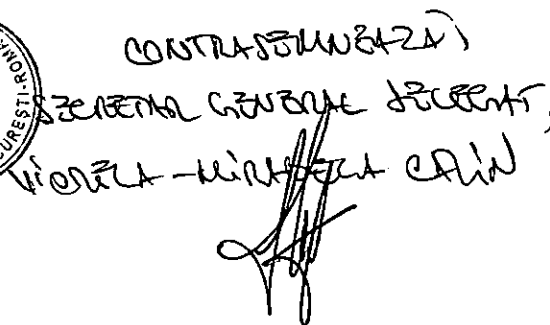 UREȘTI - ROMÂ
CONTRASEMNEAZĂ,
SECRETAR GENERAL DELEGAT,
VIORELA-MIRABELA CALIN